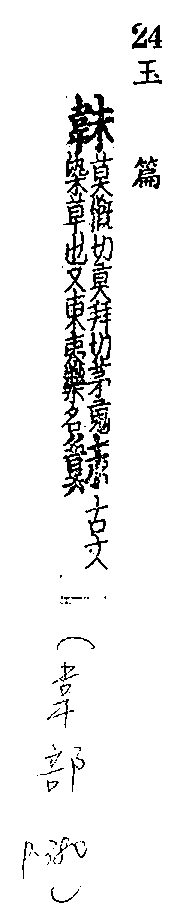 24 玉篇
韎
莫慨切莫拜切茅蒐
染草也又東夷樂名
古文
（韋部
）